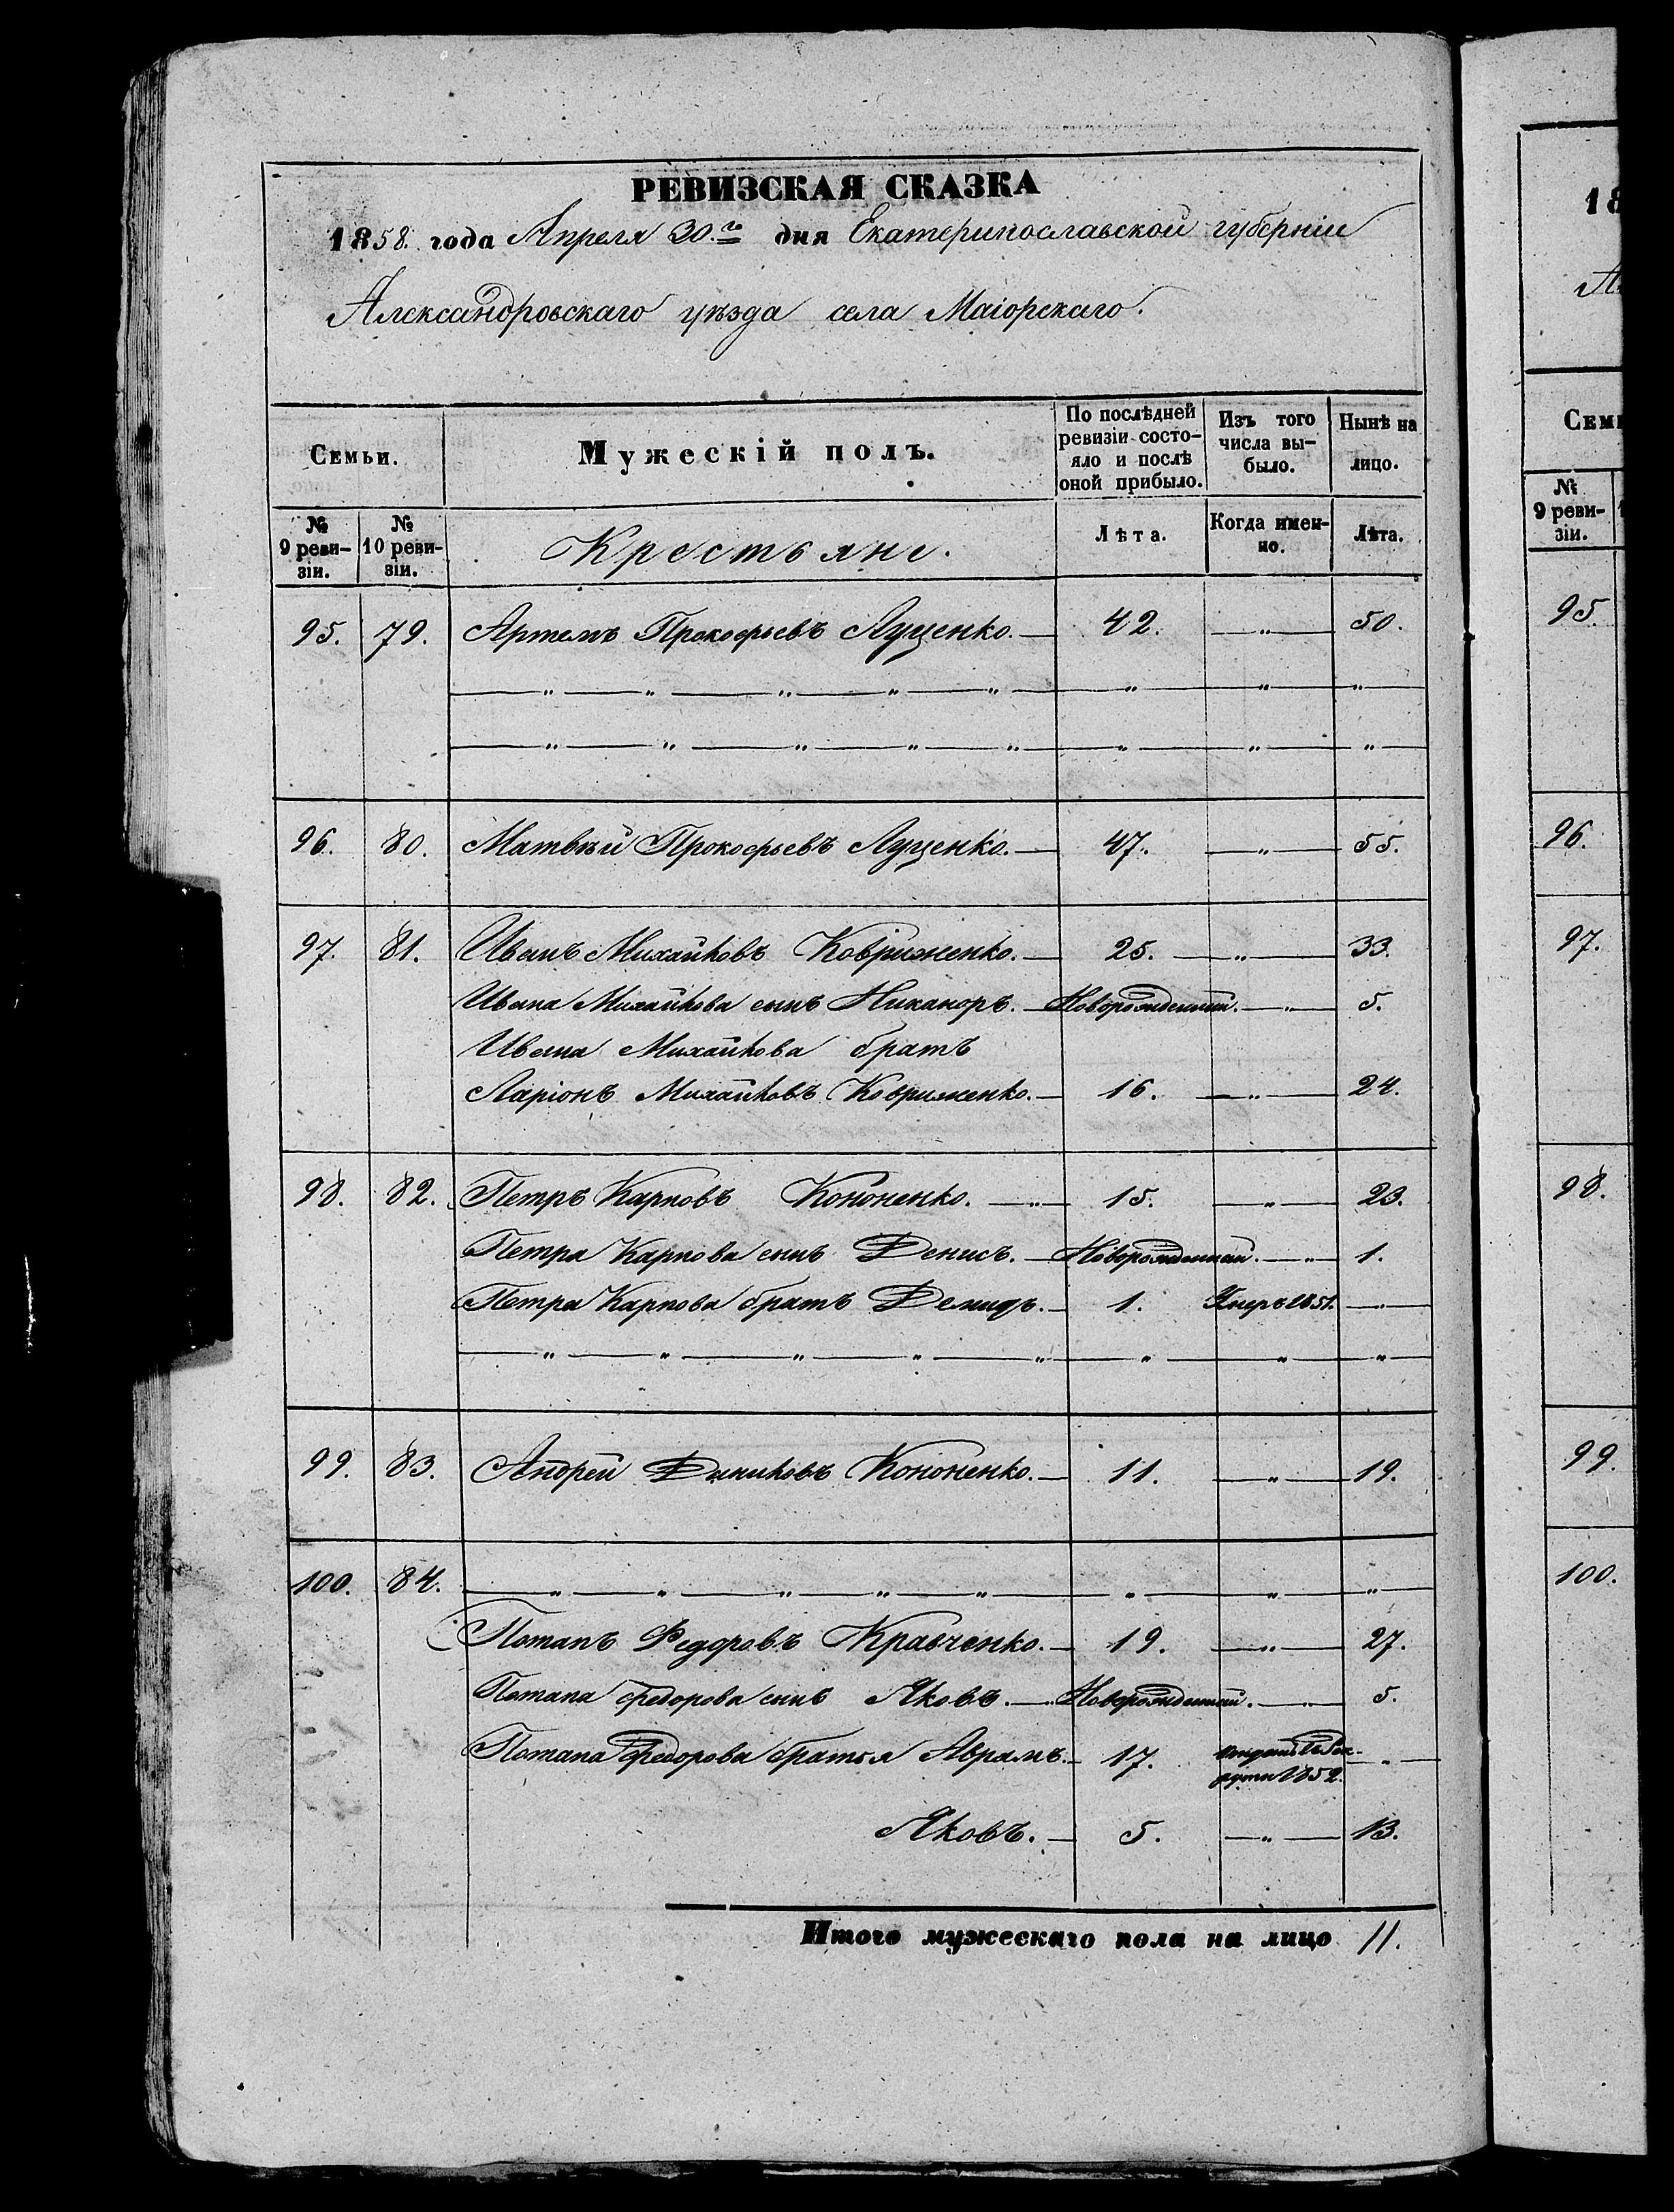 РЕВИЗСКАЯ СКАЗКА
1858 года Апреля 30.го дня Екатеринославской губерніи
Александровскаго уѣзда села Маіорскаго.
Семьи. Мужескій полъ. По послѣдней ревизіи состояло и послѣ оной прибыло. Изъ того числа выбыло. Нынѣ на лицо.
№ 9 ревизіи. № 10 ревизіи. Крестьяне. Лѣта. Когда именно. Лѣта.
95. 79. Артемъ Прокофьевъ Луценко. — 42. — " — 50.
— " — " — " — " — " — " — " — "
— " — " — " — " — " — " — " — "
96. 80. Матвѣй Прокофьевъ Луценко. — 47. — " — 55.
97. 81. Иванъ Михайловъ Ковриженко. — 25. — " — 33.
Ивана Михайлова сынъ Никаноръ. — Новорожденный. — " — 5.
Ивана Михайлова братъ
Ларіонъ Михайловъ Ковриженко. — 16. — " — 24.
98. 82. Петръ Карповъ Кононенко. — " — 15. — " — 23.
Петра Карпова сынъ Денисъ. — Новорожденный. — " — 1.
Петра Карпова братъ Демидъ. — 1. Умеръ 1851. — " —
— " — " — " — " — " — " — " — "
99. 83. Андрей Кононенко. — 11. — " — 19.
100. 84. — " — " — " — " — " — " — " — "
Потапъ Федоровъ Кравченко. — 19. — " — 27.
Потапа Федорова сынъ Яковъ. — Новорожденный. — " — 5.
Потапа Федорова братья Аврамъ. — 17. 1852. — " —
Яковъ. — 5. — " — 13.
Итого мужескаго пола на лицо 11.
18
А
Семь
№ 9 ревизіи.
95.
96.
97.
98.
99.
100.